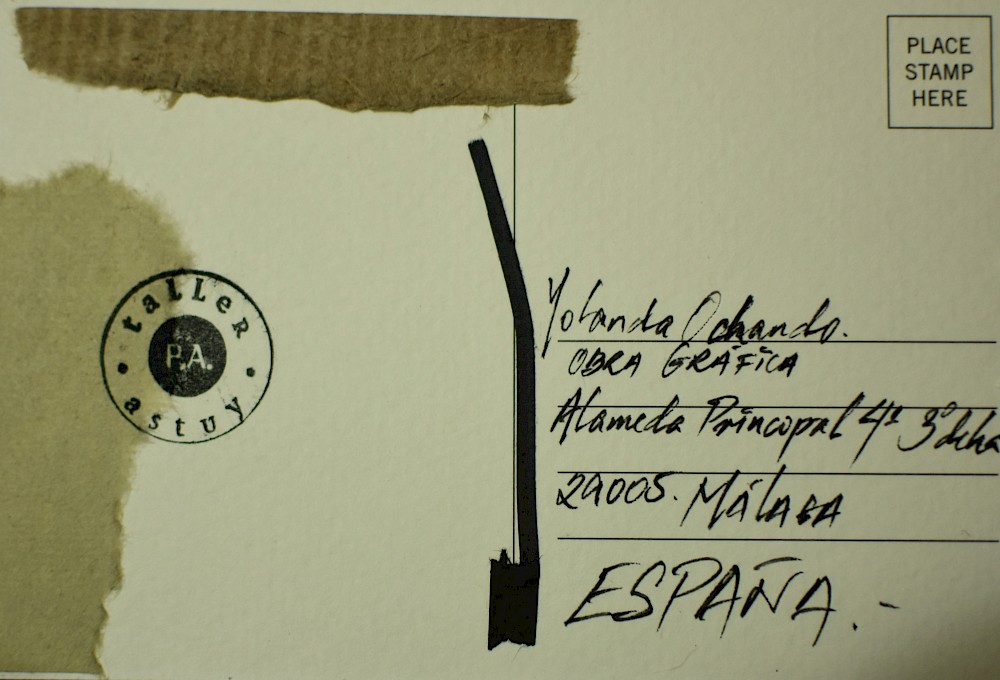 PLACE
STAMP
HERE
taller
P.A.
astuy
Yolanda Ochando.
OBRA GRÁFICA
Alameda Principal 41 3º dcha
29005. MÁLAGA
ESPAÑA.-